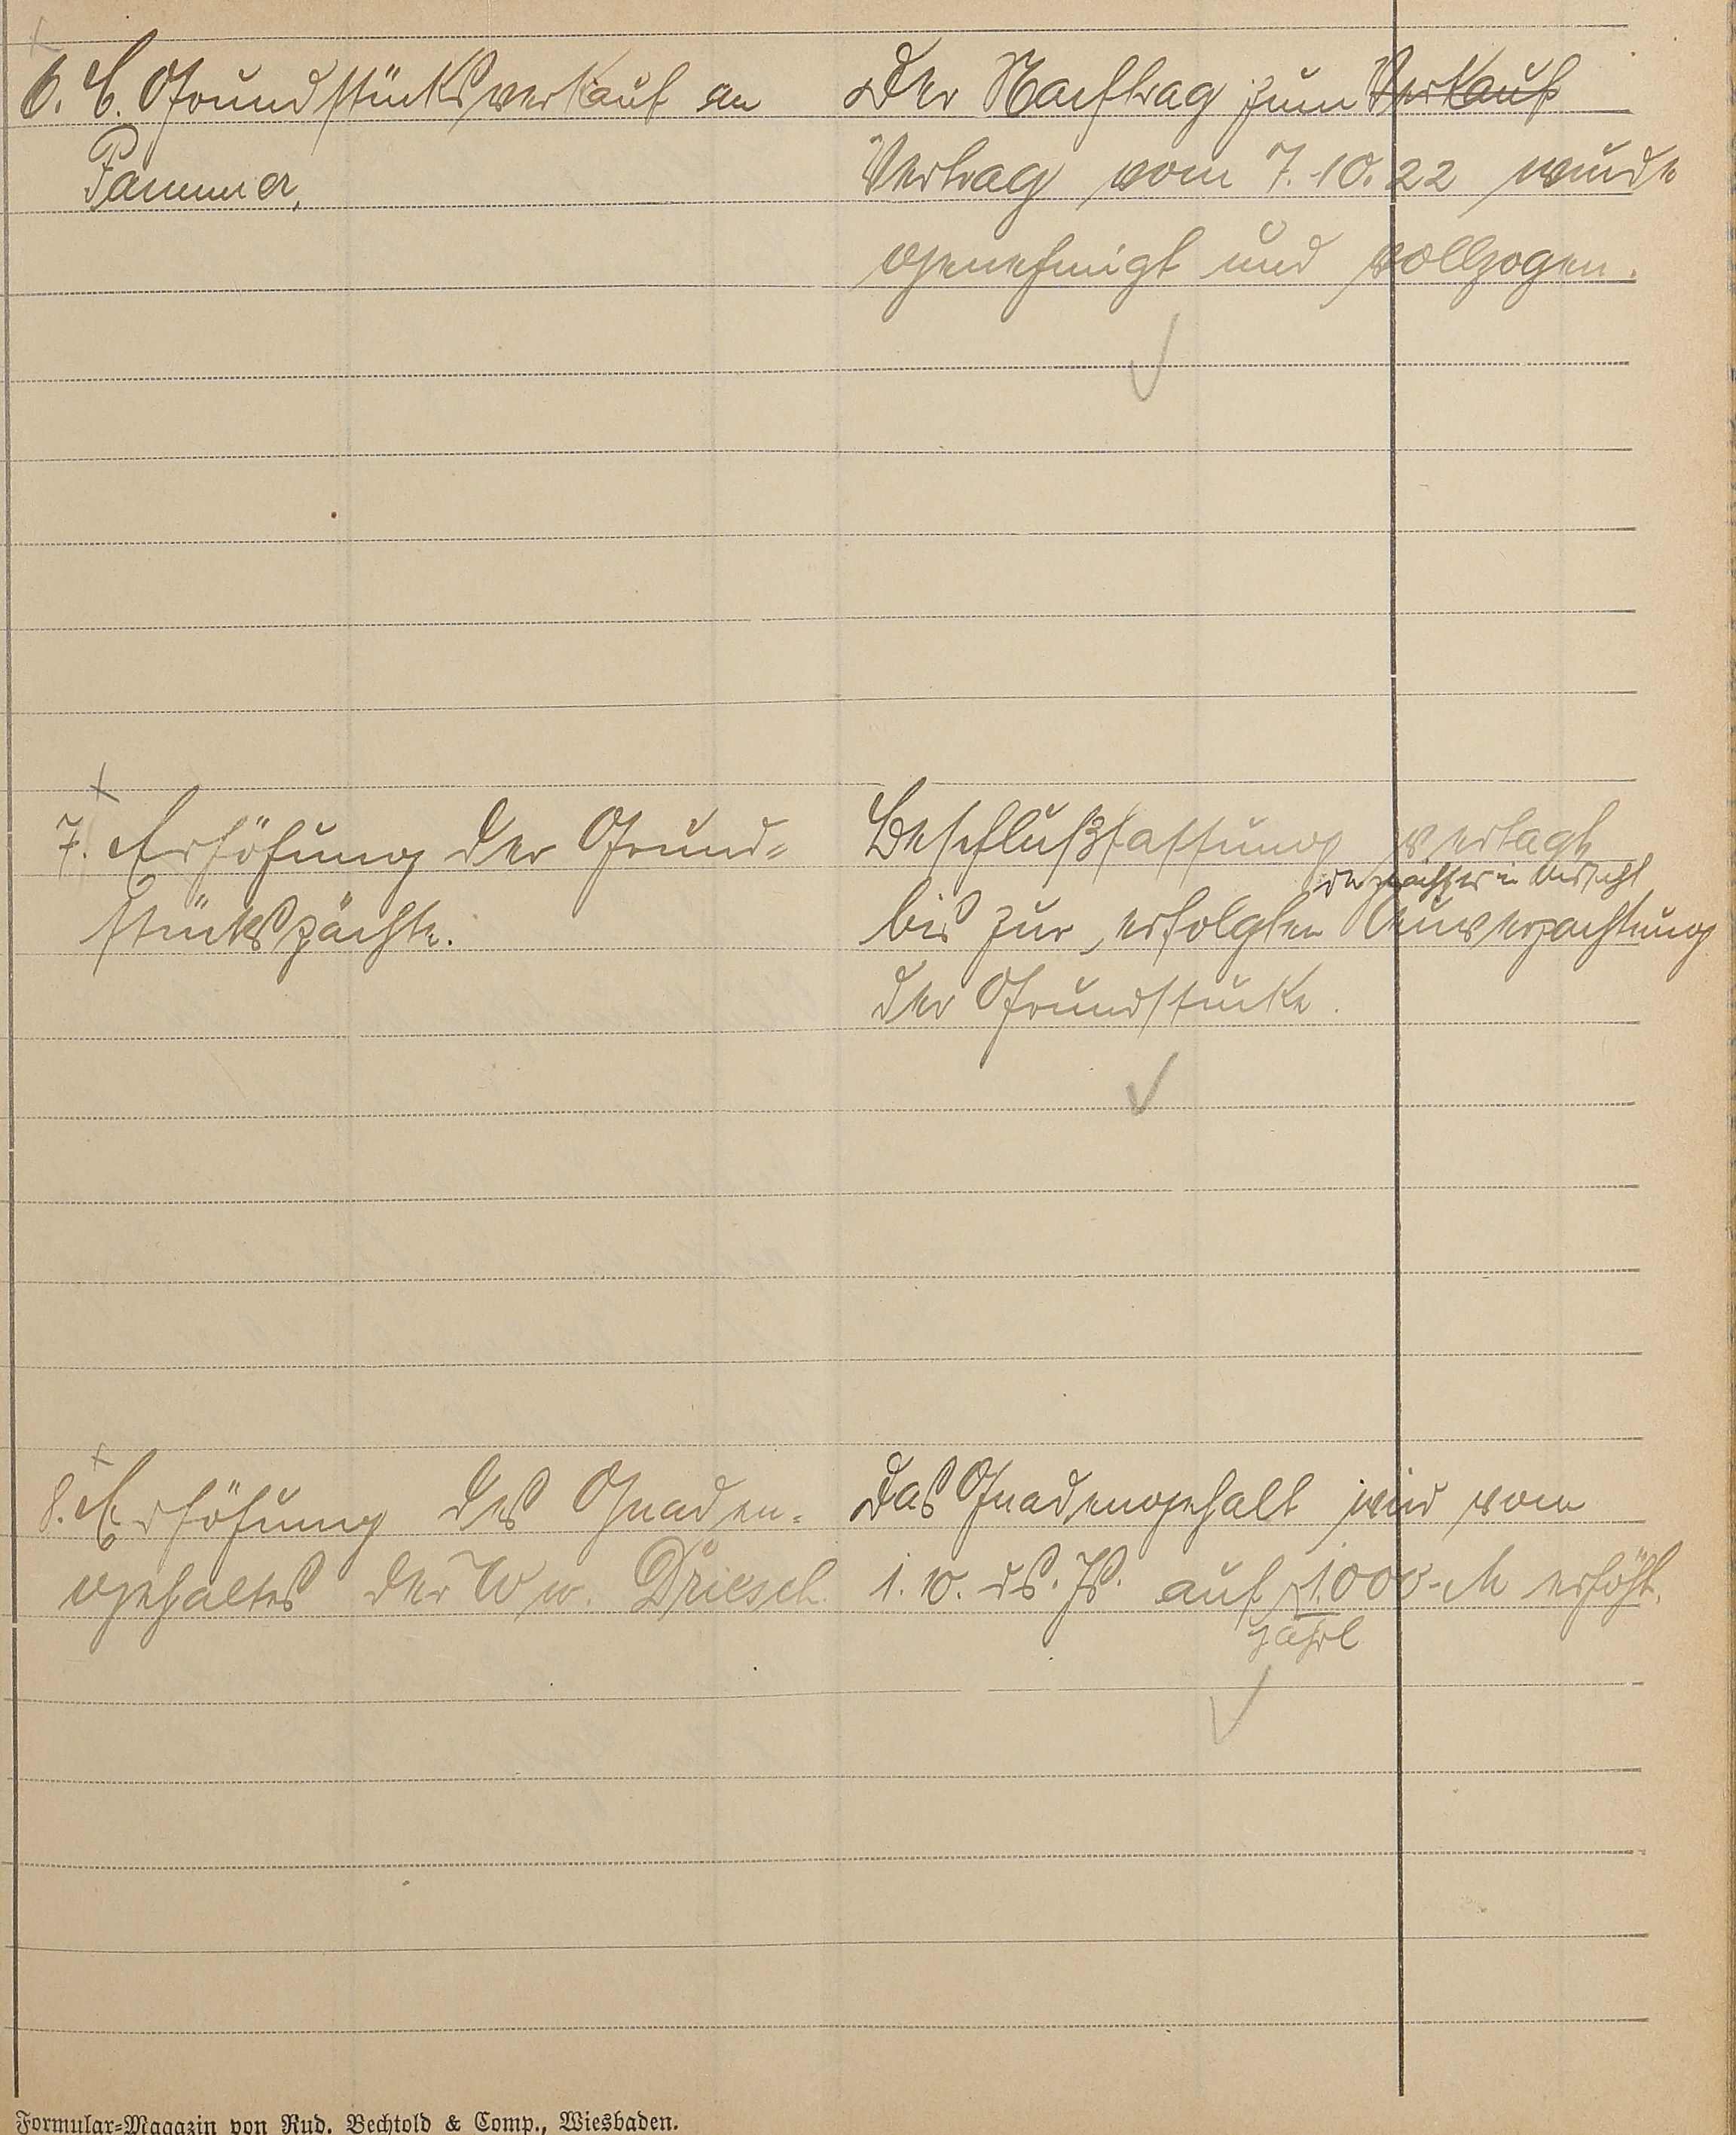 6. C. Grundstücksverkauf an
Pammer,
Der Nachtrag zum Verkauf
Vertrag vom 7.10.22 wurde
genehmigt und vollzogen.
7. Erhöhung der Grund-
stückspächte.
Beschlußfassung vertagt
bis zur erfolgten Neuverpachtung
der Grundstücke.
8. Erhöhung des Gnaden-
gehaltes der Ww. Driesch
Das Gnadengehalt wird vom
1.10. ds. Js. auf 1000 M erhöht.
jährl
Formular-Magazin von Rud. Bechtold & Comp., Wiesbaden.